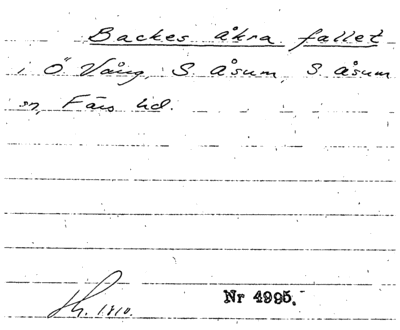 Backes åkra fallet
i Ö Vång, S Åsum, S Åsum
sn, Färs hd.
Nr 4995.
1810.